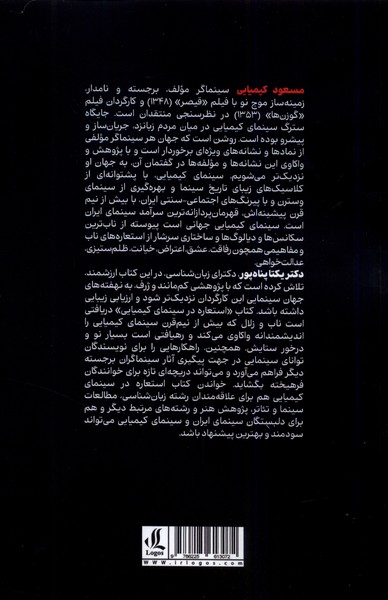 مسعود کیمیایی سینماگر مؤلف، برجسته و نامدار،
زمینه‌ساز موج نو با فیلم «قیصر» (۱۳۴۸) و کارگردان فیلم
«گوزن‌ها» (۱۳۵۳) در نظرسنجی منتقدان است. جایگاه
سترگ سینمای کیمیایی در میان مردم زبانزد، جریان‌ساز و
پیشرو بوده است. روشن است که جهان هر سینماگر مؤلفی
از نمادها و نشانه‌های ویژه‌ای برخوردار است و با پژوهش و
واکاوی این نشانه‌ها و مؤلفه‌ها در گفتمان آن، به جهان او
نزدیک‌تر می‌شویم. سینمای کیمیایی، با پشتوانه‌ای از
کلاسیک‌های زیبای تاریخ سینما و بهره‌گیری از سینمای
وسترن و با پیرنگ‌های اجتماعی-سنتی ایران، با بیش از نیم
قرن پیشینه‌اش، قهرمان‌پردازانه‌ترین سرآمد سینمای ایران
است. سینمای کیمیایی جهانی است پیوسته از ناب‌ترین
سکانس‌ها و دیالوگ‌ها و ساختاری سرشار از استعاره‌های ناب
و مفاهیمی همچون رفاقت، عشق، اعتراض، خیانت، ظلم‌ستیزی،
عدالت‌خواهی.
دکتر یکتا پناه‌پور، دکترای زبان‌شناسی، در این کتاب ارزشمند،
تلاش کرده است که با پژوهشی کم‌مانند و ژرف، به نهفته‌های
جهان سینمایی این کارگردان نزدیک‌تر شود و ارزیابی زیبایی
داشته باشد. کتاب «استعاره در سینمای کیمیایی» دریافتی
است ناب و زلال که بیش از نیم‌قرن سینمای کیمیایی را
اندیشمندانه واکاوی می‌کند و رهیافتی است بسیار نو و
درخور ستایش. همچنین، راهکارهایی را برای نویسندگان
توانای سینمایی در جهت پیگیری آثار سینماگران برجسته
دیگر فراهم می‌آورد و می‌تواند دریچه‌ای تازه برای خوانندگان
فرهیخته بگشاید. خواندن کتاب استعاره در سینمای
کیمیایی هم برای علاقه‌مندان رشته زبان‌شناسی، مطالعات
سینما و تئاتر، پژوهش هنر و رشته‌های مرتبط دیگر و هم
برای دلبستگان سینمای ایران و سینمای کیمیایی می‌تواند
سودمند و بهترین پیشنهاد باشد.
Logos
9 786225 613072
www.irlogos.com